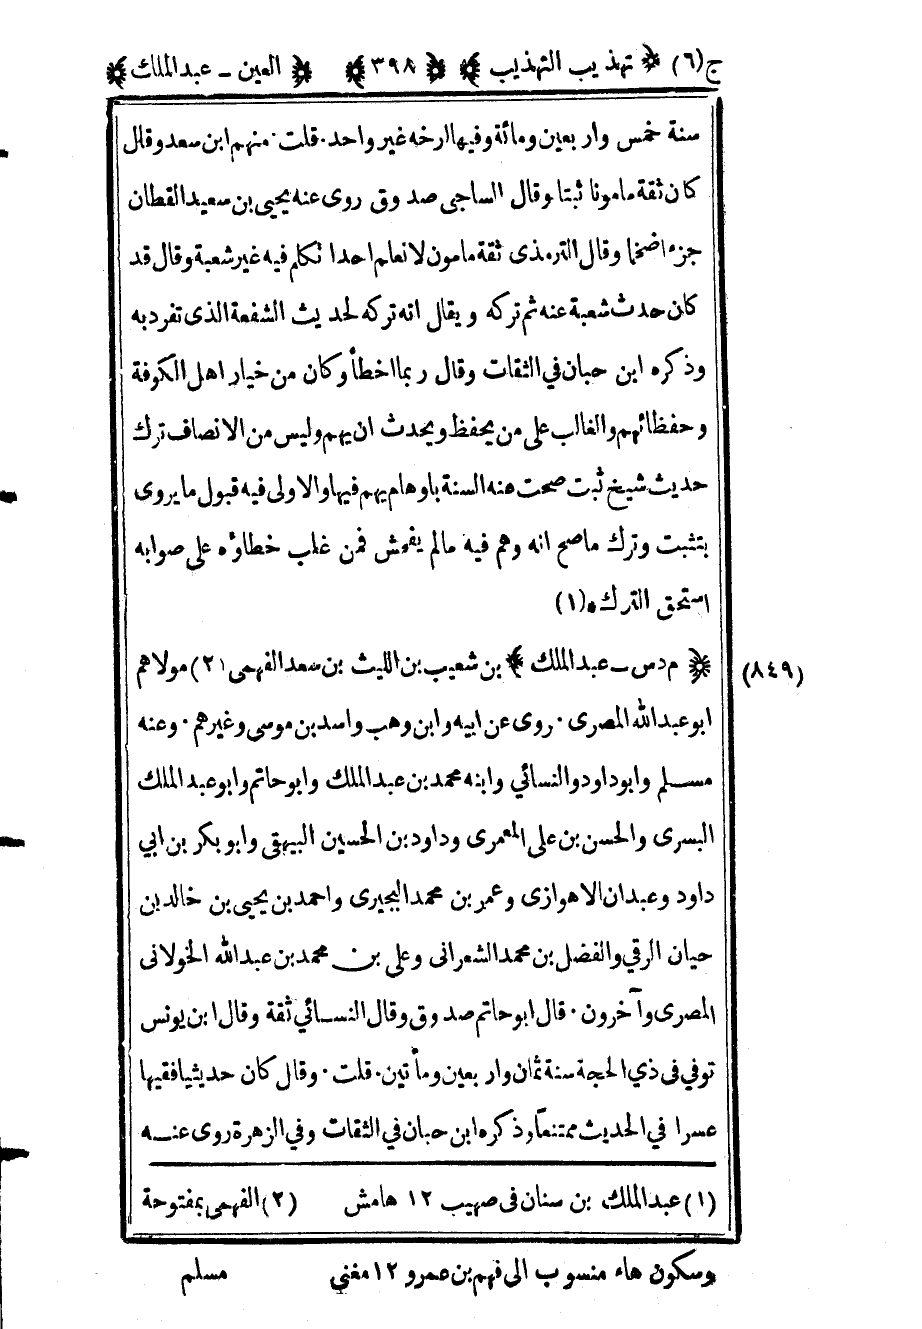 ج(٦) ﴿ تهذيب التهذيب ﴾ ﴿ ٣٩٨ ﴾ ﴿ العين ـ عبدالملك ﴾
سنة خمس واربعين ومائة وفيها ارخه غير واحد. قلت. منهم ابن سعد وقال
كان ثقة مامونا ثبتا وقال الساجى صدوق روى عنه يحيى بن سعيد القطان
جزء اضخما وقال الترمذى ثقة مامون لا نعلم احدا تكلم فيه غير شعبة وقال قد
كان حدث شعبة عنه ثم تركه ويقال انه تركه لحديث الشفعة الذى تفرد به
وذكره ابن حبان في الثقات وقال ربما اخطأ وكان من خيار اهل الكوفة
وحفظائهم والغالب على من يحفظ ويحدث ان يهم وليس من الانصاف ترك
حديث شيخ ثبت صحت عنه السنة باوهام يهم فيها والاولى فيه قبول ما يروى
بتثبت وترك ماصح انه وهم فيه مالم يفحش فمن غلب خطاؤه على صوابه
استحق الترك. (١)
﴿ م دس ـ عبدالملك ﴾ بن شعيب بن الليث بن سعد الفهمى (٢) مولاهم (٨٤٩)
ابو عبدالله المصرى. روى عن ابيه وابن وهب واسد بن موسى وغيرهم. وعنه
مسلم وابو داود والنسائي وابنه محمد بن عبدالملك وابو حاتم وابو عبدالملك
البسرى والحسن بن على المعمرى وداود بن الحسين البيهقى وابو بكر بن ابي
داود وعبدان الاهوازى وعمر بن محمد البجيرى واحمد بن يحيى بن خالد بن
حيان الرقي والفضل بن محمد الشعرانى وعلى بن محمد بن عبدالله الخولانى
المصرى وآخرون. قال ابو حاتم صدوق وقال النسائي ثقة وقال ابن يونس
توفي فى ذي الحجة سنة ثمان واربعين ومأتين. قلت. وقال كان حديثيا فقيها
عسرا في الحديث ممتنعاً وذكره ابن حبان في الثقات وفي الزهرة روى عنه
(١) عبدالملك بن سنان فى صهيب ١٢ هامش (٢) الفهمى بمفتوحة
وسكون هاء منسوب الى فهم بن عمرو ١٢ مغني مسلم